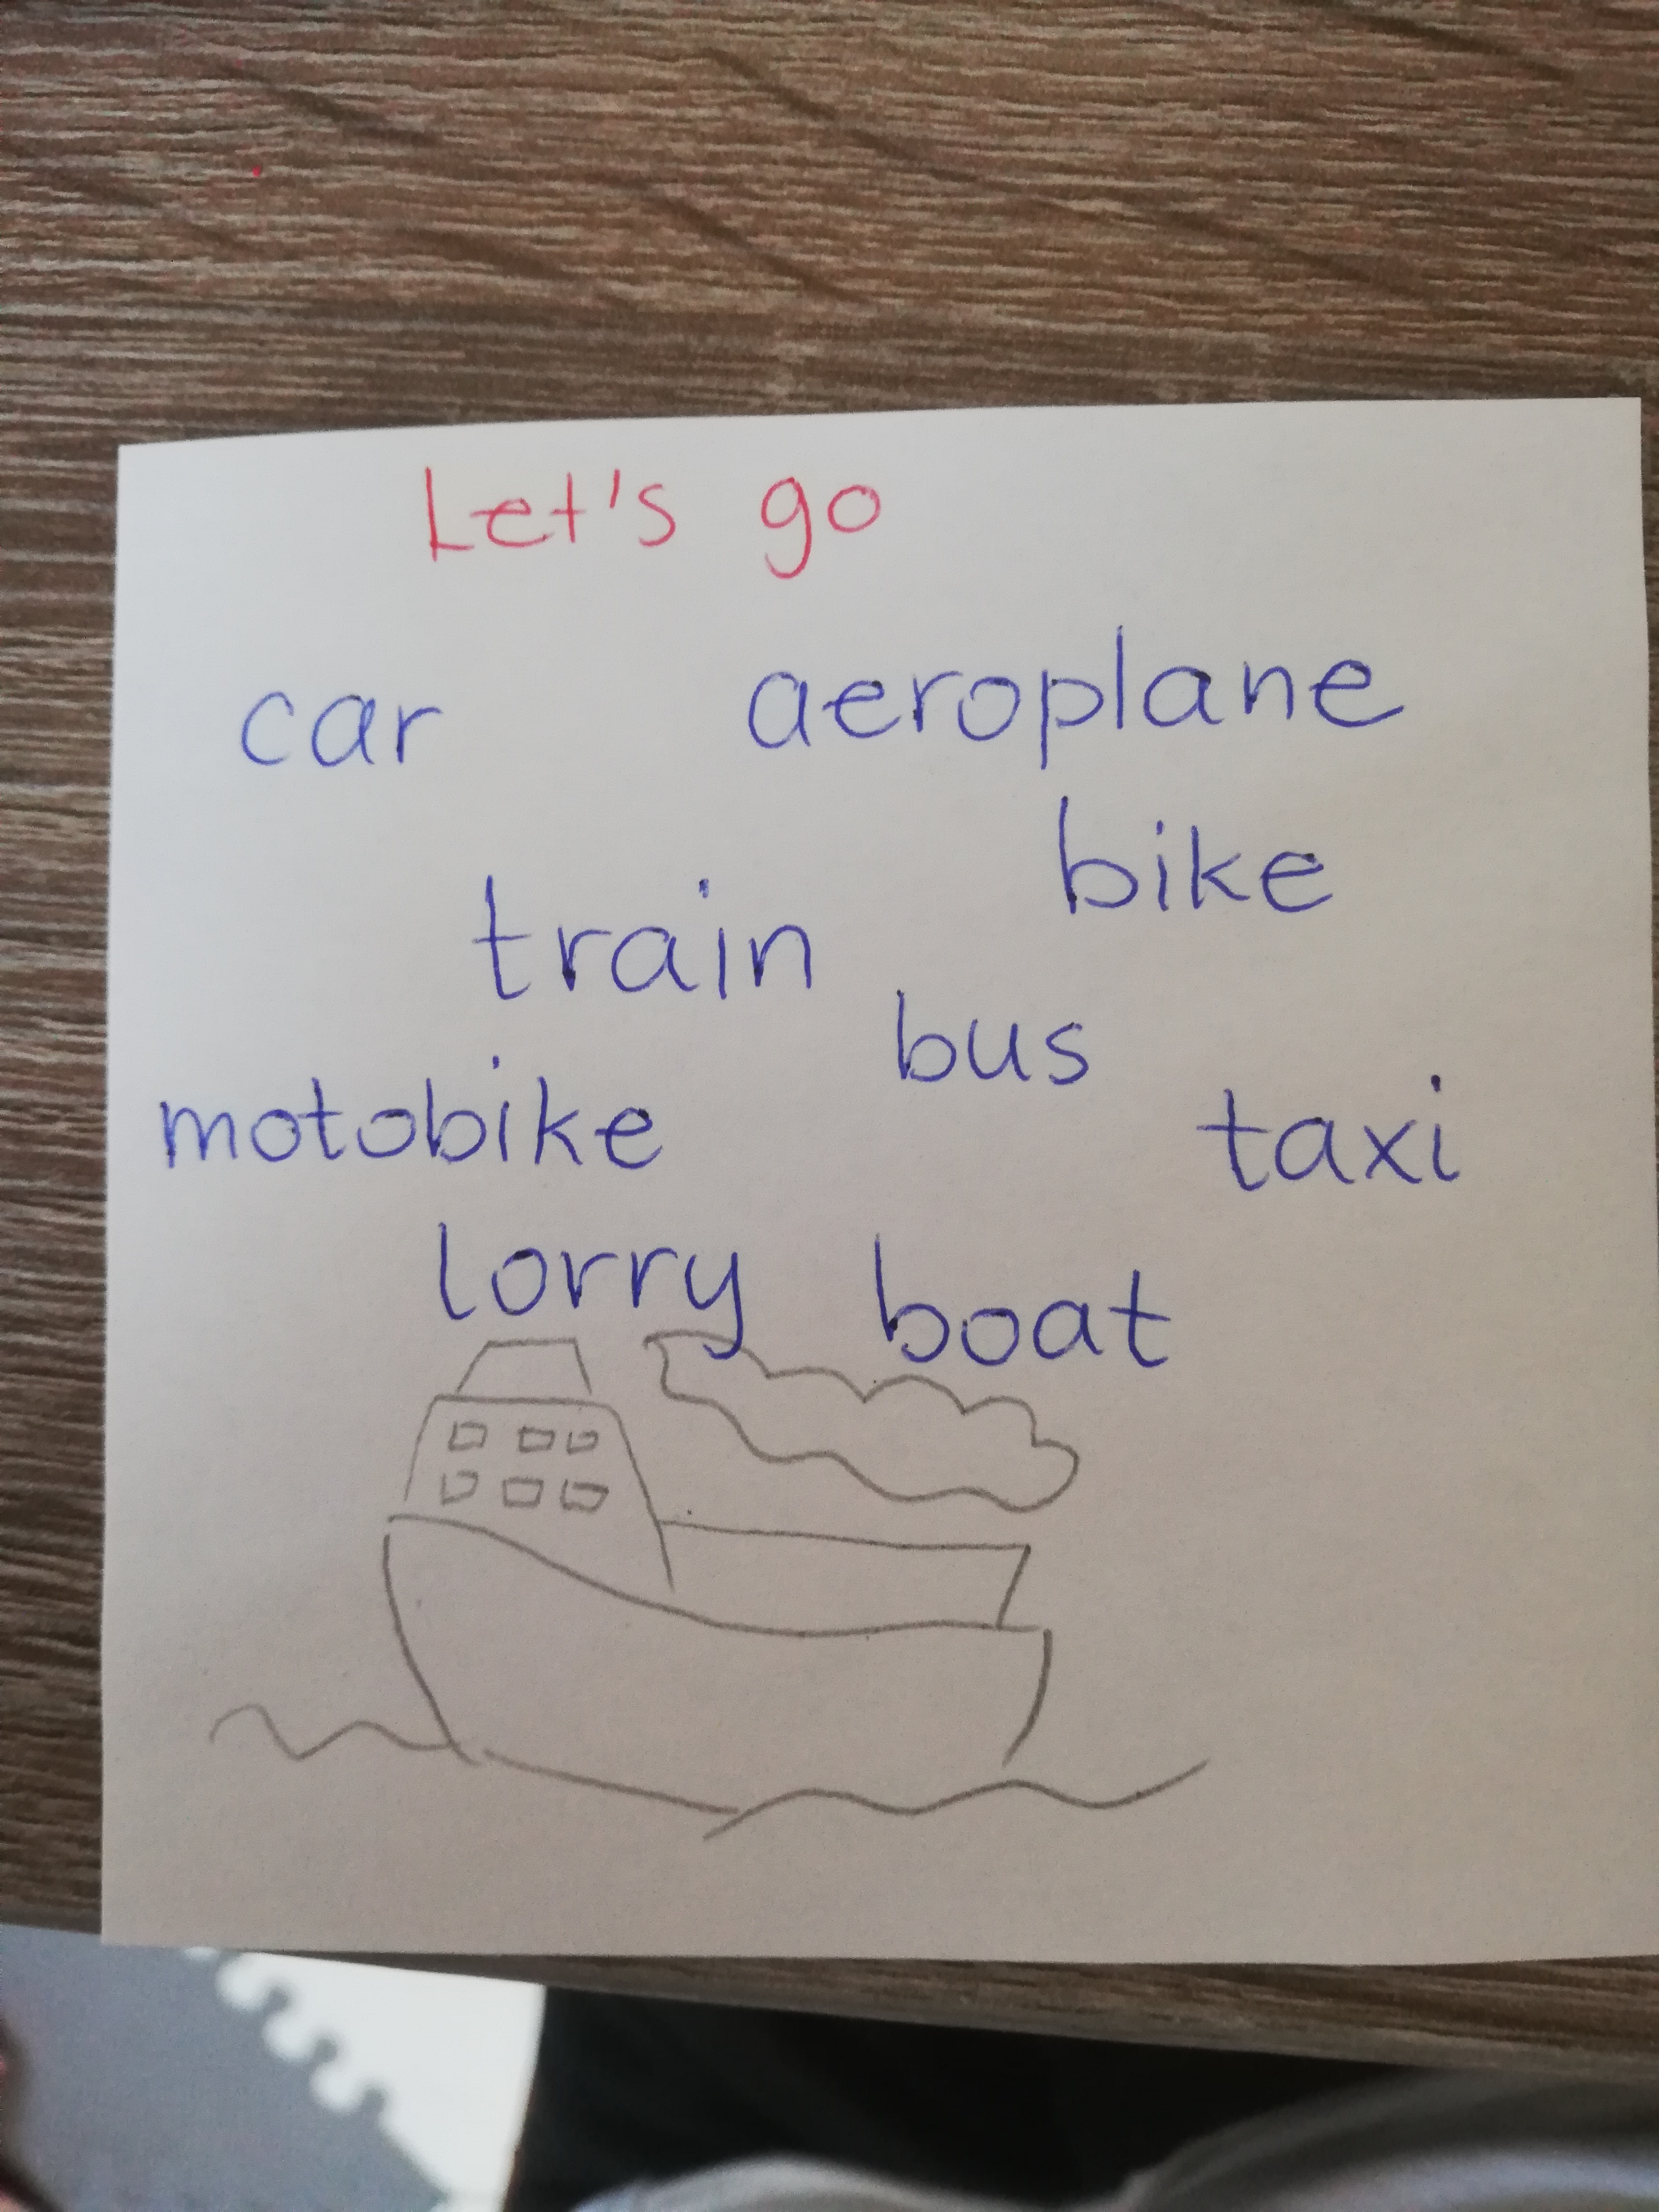 Let's go
car aeroplane
bike
train
bus
motobike taxi
lorry boat